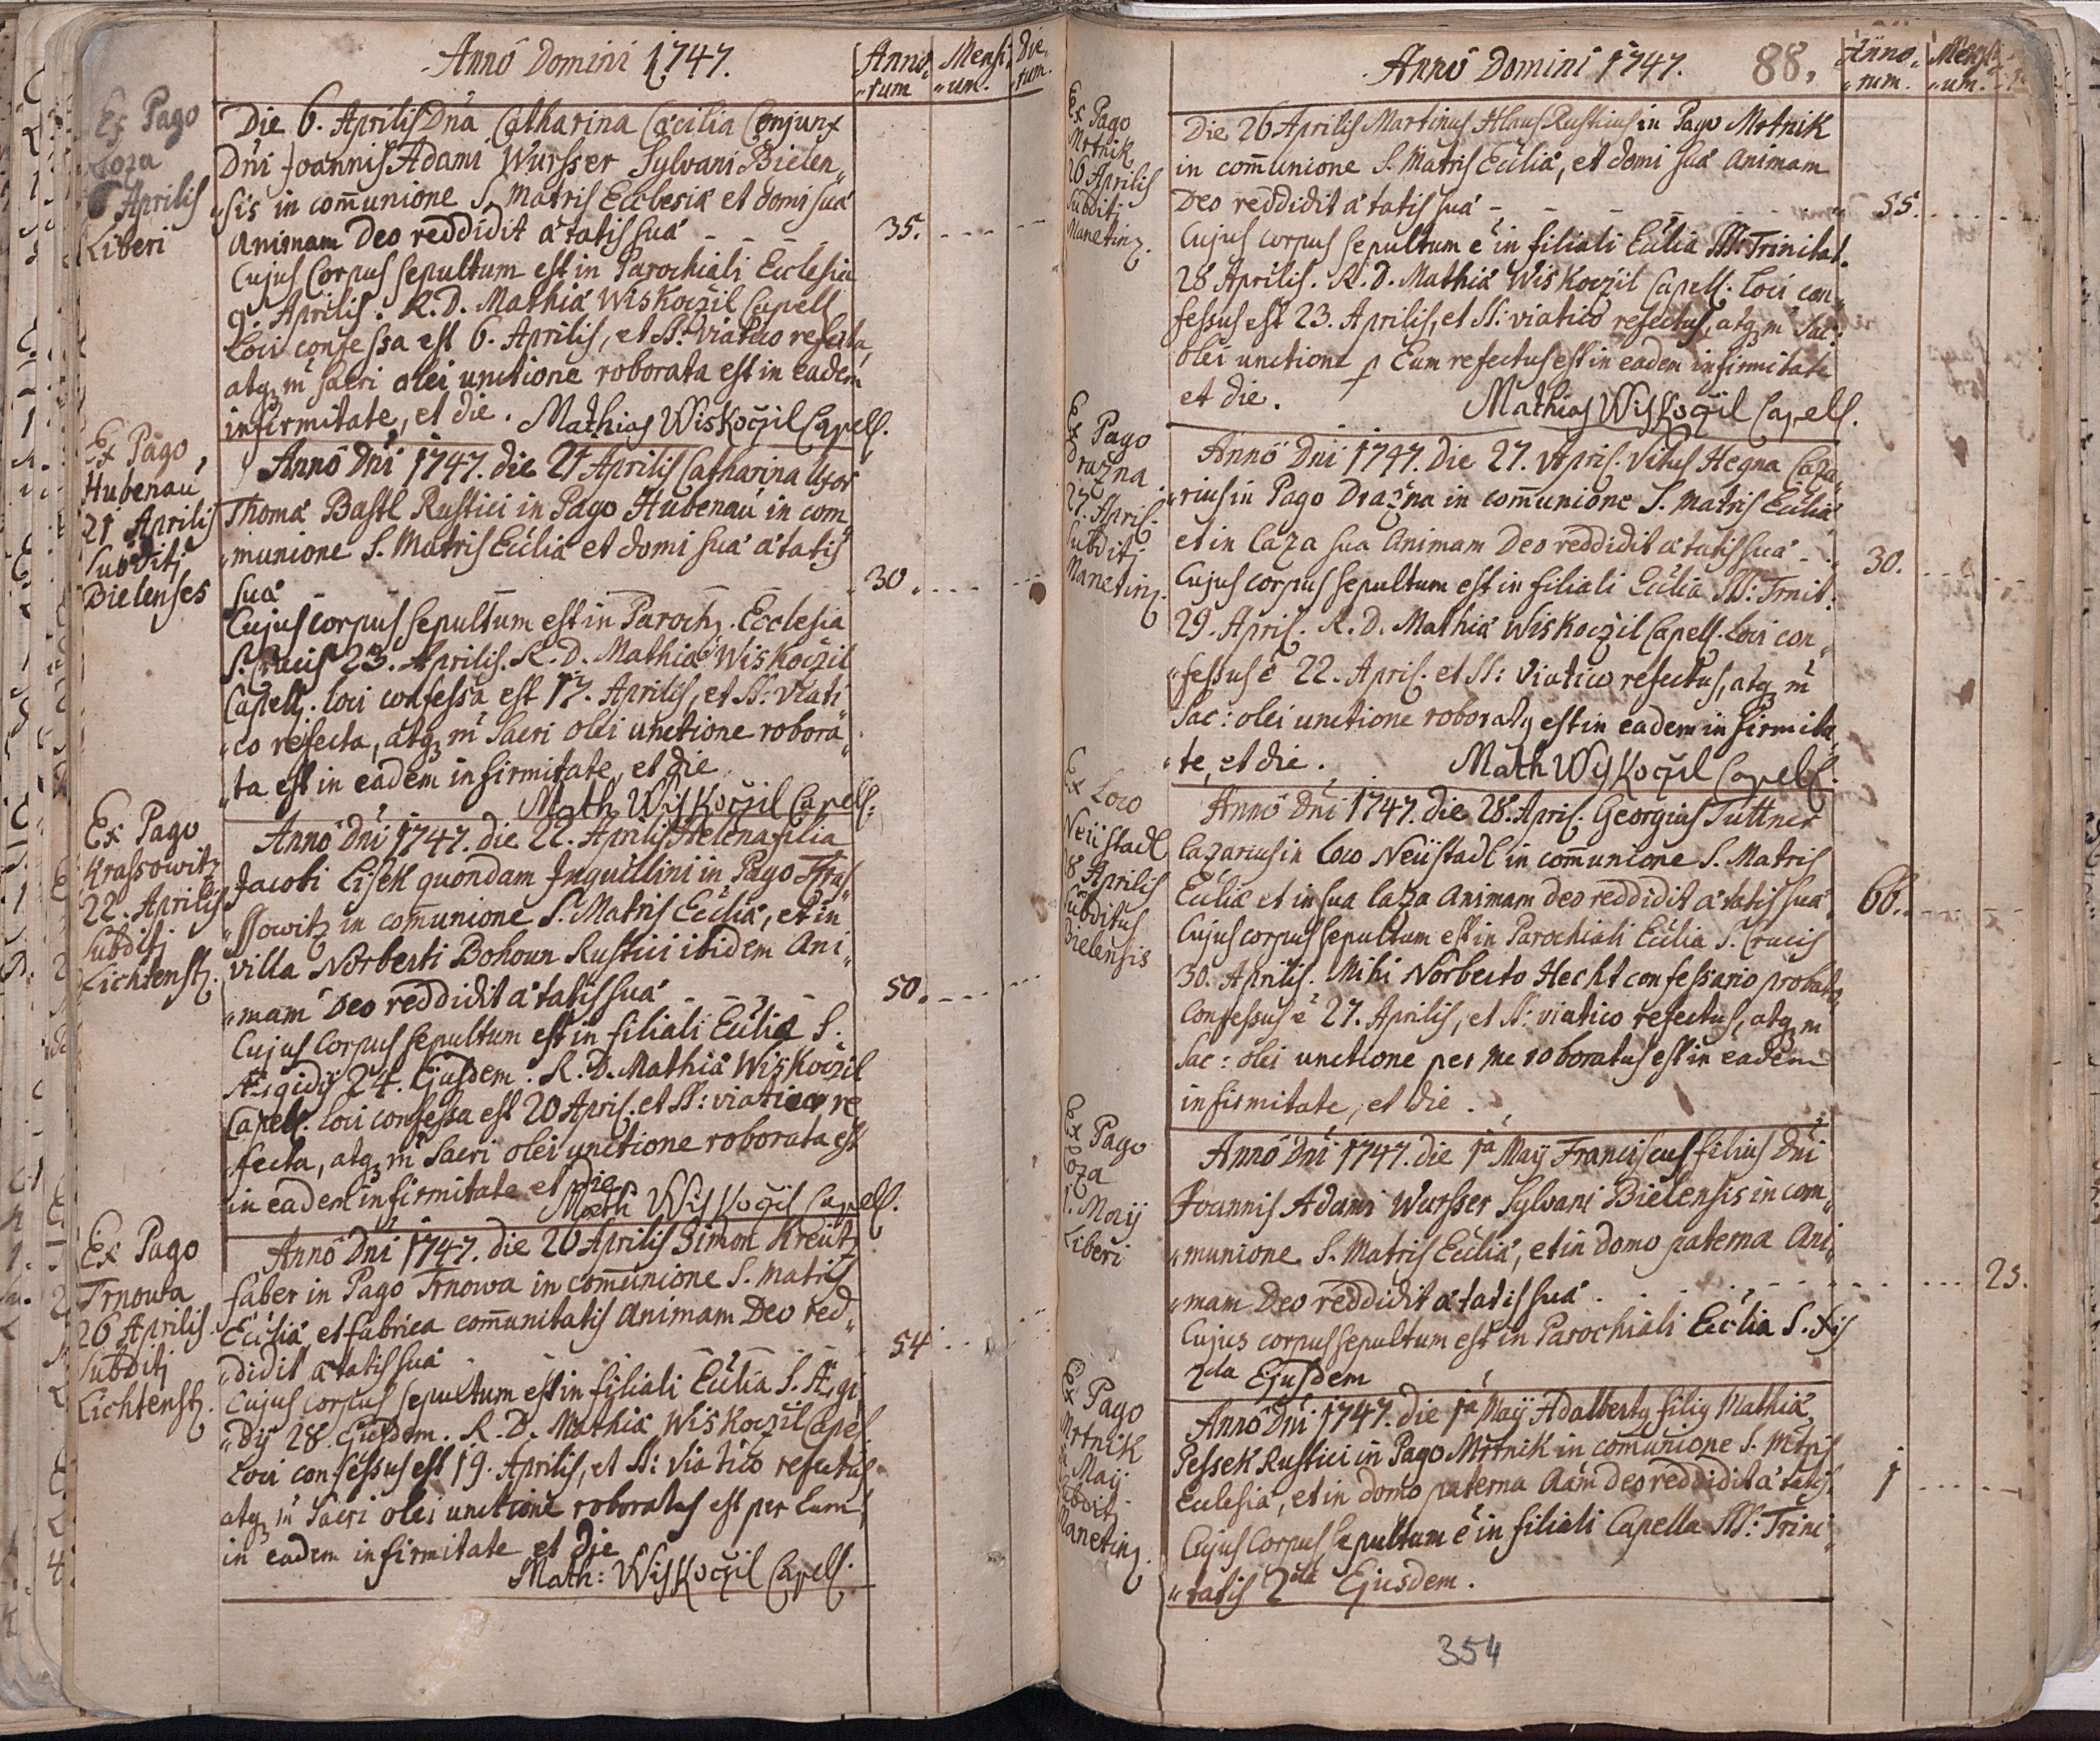 Anno Domini 1747.
Anno„ Mensi„ Die„
„rum „um. „rum.
Ex Pago
Loza
6 Aprilis
Liberi
Die 6. Aprilis Dna Catharina Cæcilia Conjunx
Dni Joannis Adami Wursser Sylvani Bielen„
„sis in com̄unione S. Matris Ecclesiæ et domi suæ
Animam Deo reddidit ætatis suæ - - - 35. - - - -
Cujus Corpus sepultum est in Parochiali Ecclesia
9. Aprilis. R. D. Mathiæ Wiskoczil Capell
Loci confessa est 6. Aprilis, et SS: Viatico refecta,
atq₃ in Sacri olei unctione roborata est in eadem
infirmitate, et die. Mathias Wiskoczil Capell.
Ex Pago
Hubenau
21 Aprilis
Subditi
Bielenses
Anno Dni 1747. die 21 Aprilis Catharina Uxor
Thomæ Bastl Rustici in Pago Hubenau in com„
„munione S. Matris Ecclia et domi suæ ætatis
suæ - - - 30. - - - -
Cujus corpus sepultum est in Paroch. Ecclesia
S. Crucis 23. Aprilis. R. D. Mathiæ Wiskoczil
Capell. loci confessa est 17. Aprilis, et SS: Viati„
„co refecta, atq₃ in Sacri olei unctione robora„
„ta est in eadem infirmitate, et die
Math Wiskoczil Capell:
Ex Pago
Krassowitz
22. Aprilis
Subditi
Lichtenst.
Anno Dni 1747. die 22. Aprilis Helena filia
Jacobi Lisek quondam Inquillini in Pago Kra„
„ssowitz in com̄unione S. Matris Ecclia, et in
villa Norberti Bohoun Rustici ibidem Ani„
„mam Deo reddidit ætatis suæ - - - 50. - - - -
Cujus Corpus sepultum est in filiali Ecclia S.
Ægidij 24. Ejusdem. R. D. Mathiæ Wiskoczil
Capell. loci confessa est 20 April. et SS: viatico re
fecta, atq₃ in Sacri olei unctione roborata est
in eadem infirmitate et Die
Math Wiskoczil Capell.
Ex Pago
Trnowa
26 Aprilis
Subditi
Lichtenst.
Anno Dni 1747. die 26 Aprilis Simon Kreutz
faber in Pago Trnowa in com̄unione S. Matris
Ecclia et fabrica com̄unitatis Animam Deo red„
„didit ætatis suæ - - - 54 - - -
Cujus corpus sepultum est in filiali Ecclia S. Ægi„
„dij 28. Ejusdem. R. D. Mathiæ Wiskoczil Capel.
Loci confessus est 19. Aprilis, et SS: Viatico refectus
atq₃ in Sacri olei unctione roboratus est per Eum
in eadem infirmitate et die
Math: Wiskoczil Capell.
Anno Domini 1747. 88.
Anno„ Mensi
„rum. „um.
Ex Pago
Mrtnik
26 Aprilis
Subditi
Manetinz.
Die 26 Aprilis Martinus Hlaus Rusticus in Pago Mrtnik
in com̄unione S. Matris Ecclia, et domi suæ Animam
Deo reddidit ætatis suæ - - - 55. - - - -
Cujus corpus sepultum e in filiali Ecclia SS: Trinitat.
28 Aprilis. R. D. Mathiæ Wiskoczil Capell. Loci con„
fessus est 23. Aprilis, et SS: viatico refectus, atq₃ in Sac:
olei unctione p Eum refectus est in eadem infirmitate
et die. Mathias Wiskoczil Capell.
Ex Pago
Drazna
27. April.
Subditi
Manetinz.
Anno Dni 1747. Die 27. April. Vitus Hegna Caza„
„rius in Pago Drazna in com̄unione S. Matris Ecclia
et in Caza sua Animam Deo reddidit ætatis suæ - 30. - - - -
Cujus corpus sepultum est in filiali Ecclia SS: Trnit:
29. April. R. D. Mathiæ Wiskoczil Capell. Loci con„
„fessus e 22. April. et SS: Viatico refectus, atq₃ in
Sac: olei unctione roboratq est in eadem infirmita„
„te, et die. Math Wiskoczil Capell.
Ex Loco
Neüstadl
28 Aprilis
Subditus
Bielensis
Anno Dni 1747. die 28. April. Georgius Tuttner
Cazarius in Loco Neüstadl in com̄unione S. Matris
Ecclia et in sua Caza Animam deo reddidit ætatis suæ 66. - - - -
Cujus corpus sepultum est in Parochiali Ecclia S. Crucis
30. Aprilis. Mihi Norberto Hecht confessario probato
Confessus e 27. Aprilis, et SS: viatico refectus, atq₃ in
Sac: olei unctione per me roboratus est in eadem
infirmitate, et die.
Ex Pago
Loza
1. Maij
Liberi
Anno Dni 1747. die 1a Maij Franciscus filius Dni
Joannis Adami Wursser Sylvani Bielensis in com„
„munione S. Matris Ecclia, et in domo paterna Ani„
„mam Deo reddidit ætatis suæ - - - 25.
Cujus corpus sepultum est in Parochiali Ecclia S. Xis
2da Ejusdem
Ex Pago
Mrtnik
Maij
Subditi
Manetinz.
Anno Dni 1747. die 1a Maij Adalbertq filiq Mathiæ
Pessek Rustici in Pago Mrtnik in com̄unione S. Mtris
Eclesiæ, et in domo paterna Aam deo reddidit ætatis 1 - - - -
Cujus Corpus sepultum e in filiali Capella SS: Trini„
„tatis 2da Ejusdem.
354